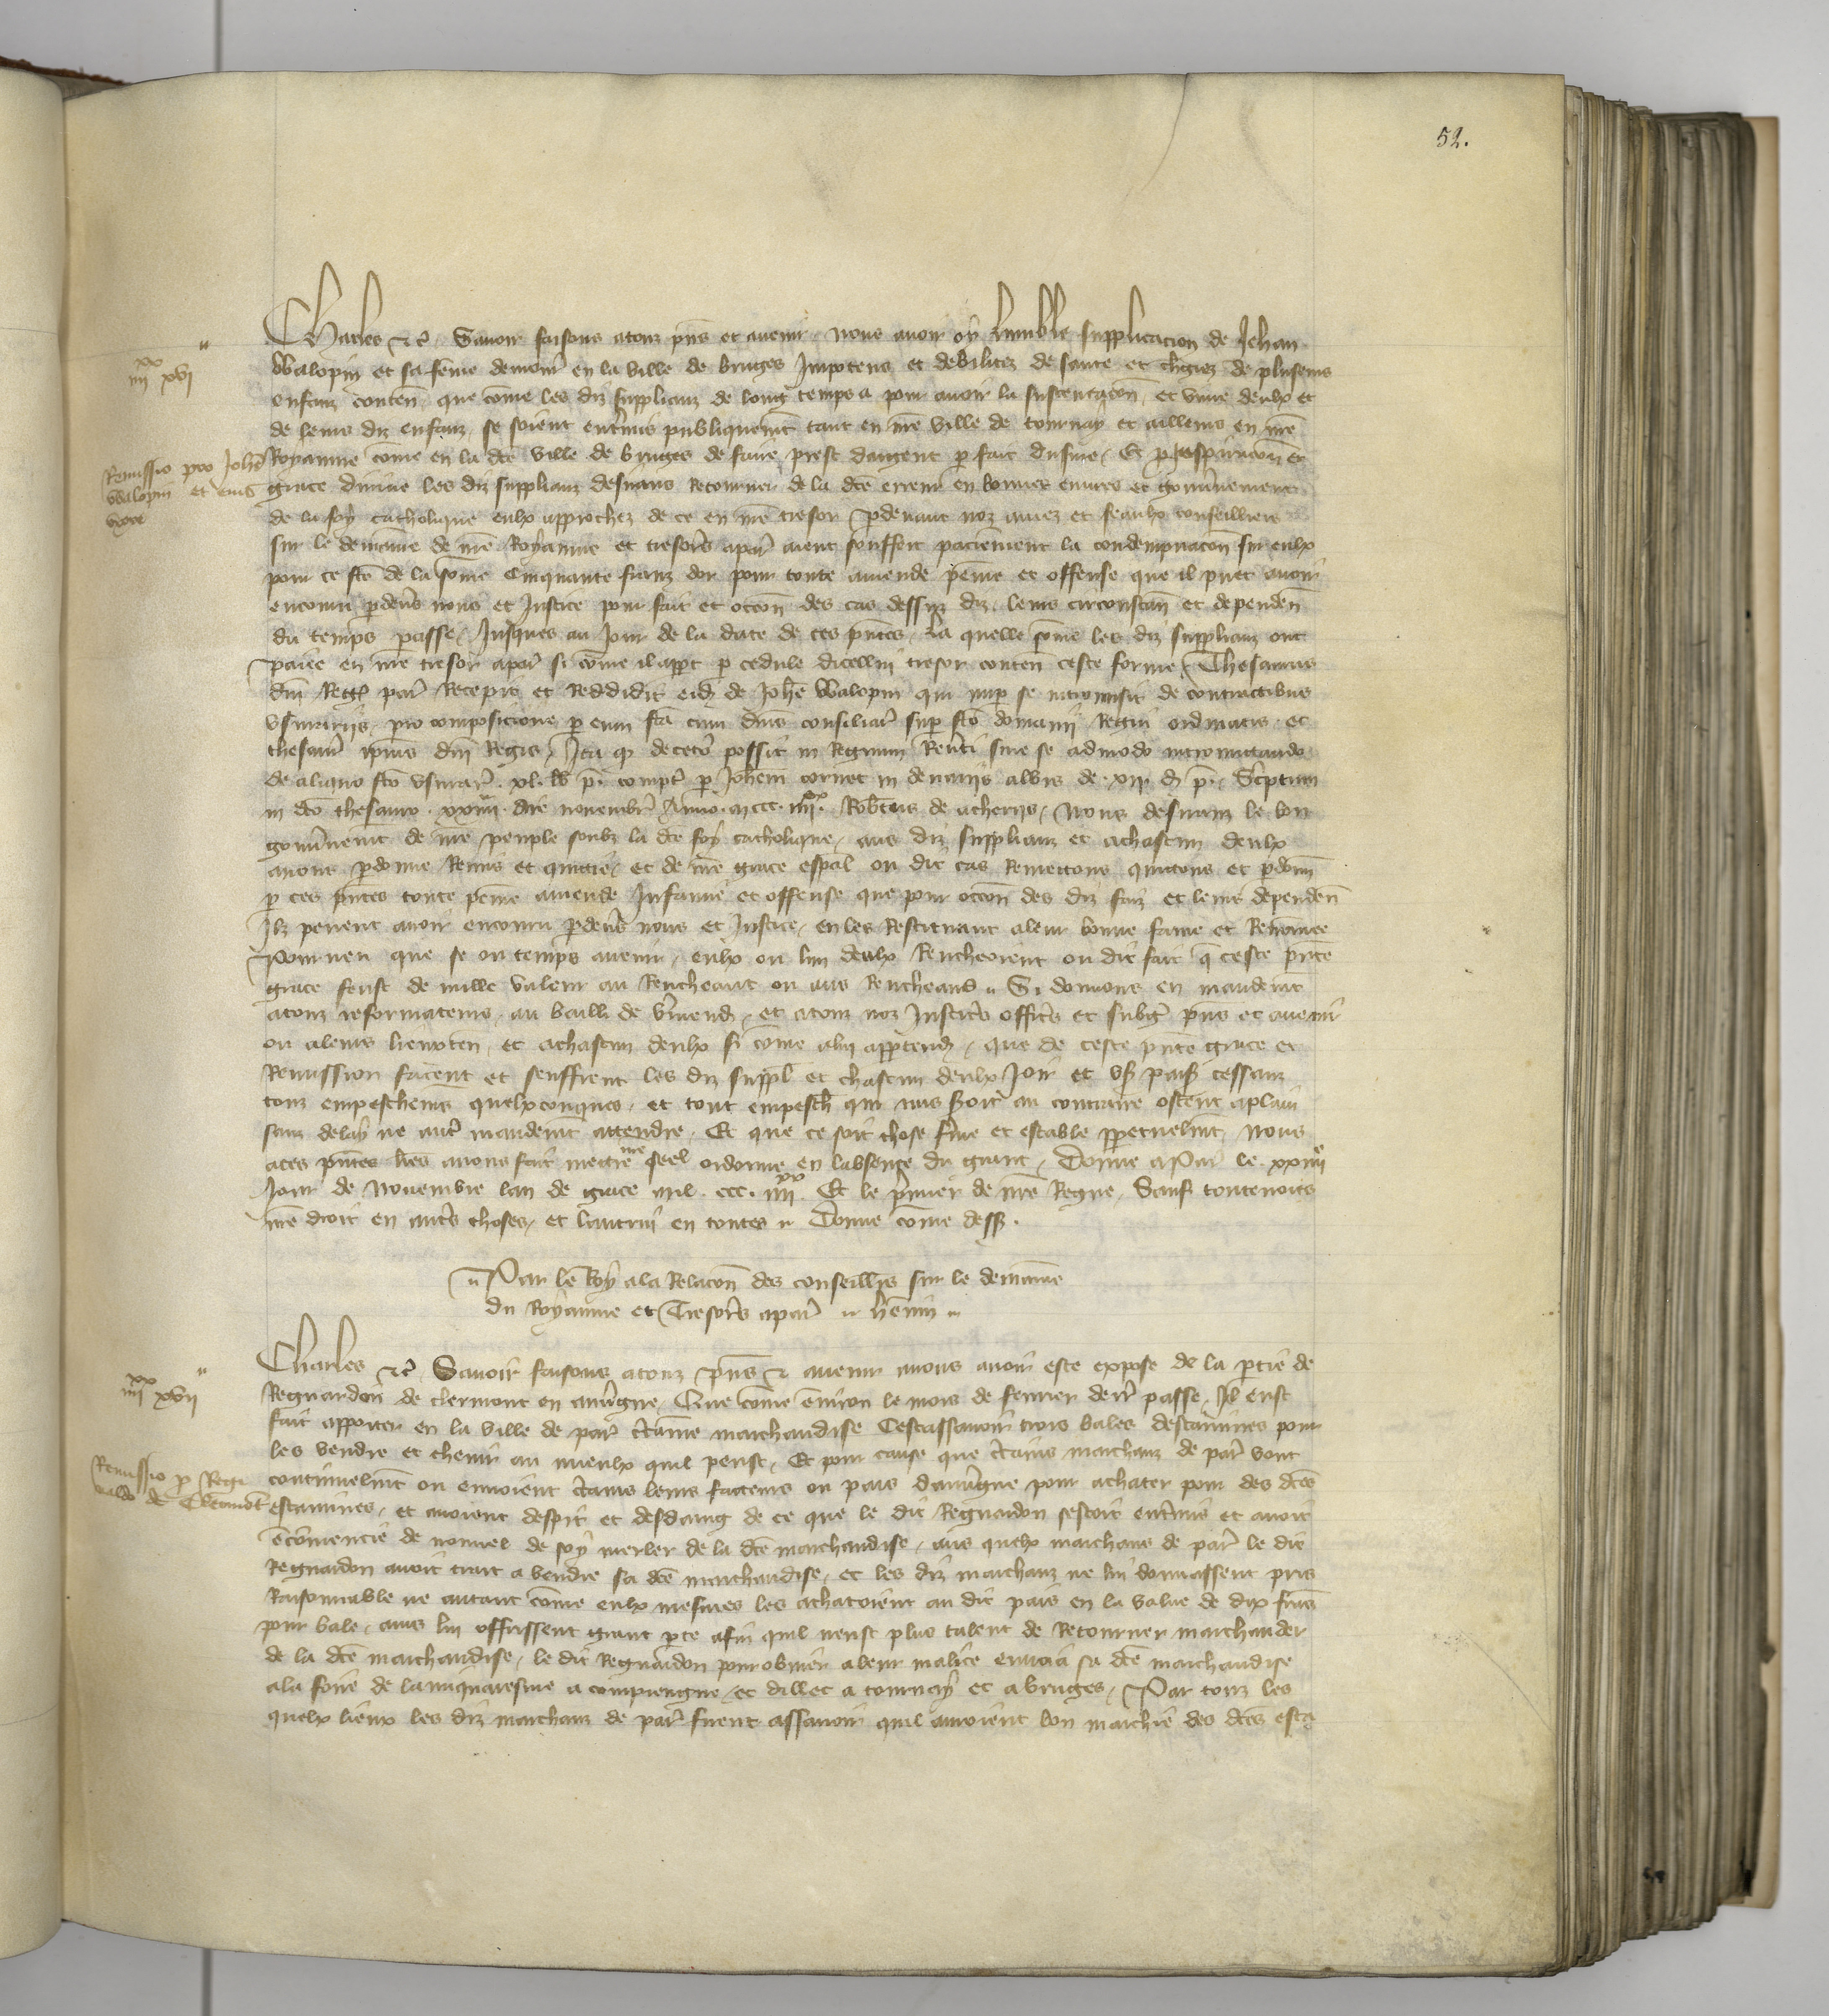 52.
Charles etc. Savoir faisons a touz pns et avenir. Nous avoir oy lumble supplicacion de Jehan
iiii xx xvi
Walopin et sa feme demour en la ville de bruges Impotens et debilitez de sante et chgiez de pluseurs
enfanz conten que come les diz supplianz de long temps a pour avoir la sustentacon et vivre deulx et
de leurs diz enfanz se soient entmis publiquemt tant en nre ville de tournay et ailleurs en nre
Royaume come en la dce ville de bruges de faire prest dargent p fait dusure. Et p Inspiracion et
Remissio pro Johe
Walopin et eius
uxore
grace divine les diz supplianz desirans Retourner de la dce erreur en bonnes euvres et gouvnement
de la foy catholique eulx approchez de ce en nre tresor pdevant noz amez et feaulx conseilliers
sur le demaine de nre Royaume et tresors apar aient souffert paciemment la condempnacon sur eulx
pour ce fce de la some Cinquante franz dor pour toute amende peine et offense que il puet avoir
encouru pdevs nous et Justice pour fait et occon des cas dessus diz leurs circonstan et dependen
du temps passe Jusques au Jour de la date de ces pntes. La quelle some les diz supplianz ont
paiee en nre tresor apar si come il appt p cedule dicellui tresor conten ceste forme. Thesaurus
dni Regis par Recepit et Reddidit eid de Johe Walopin qui nup se intromisit de contractibus
usurariis pro composicione p eum fca cum dnis consiliar sup fco domanii Regni ordinatis et
thesaur ipius dni Regis. Ita q deceto possit in Regnum Revti sine se admodo intromittando
de aliquo fco usurar. xl. lb p. compt p Johem cornet in denariis albis de xii d p. Scriptum
in dco thesauro xxiiii die novembr Anno mccc iiii xx. Robtus de acheriis. Nous desiranz le bon
gouvnemt de nre peuple soubz la dce foy catholique aus diz supplianz et achascun deulx
avons pdonne Remis et quittie et de nre grace espal ou dit cas Remettons quittons et pdonn
p ces pntes toute peine amende Infamie et offense que pour occon des diz faiz et leurs dependen
Ilz peuent avoir encouru pdevs nous et Justice en les Restituant a leur bonne fame et Renomee
Pourveu que se ou temps avenir eulx ou lun deulx Rencheoient ou dit fait q ceste pnte
grace feust de nulle valeur au Rencheant ou aus Rencheans. Si donnons en mandemt
atouz reformateurs au bailli de vmend et atouz noz Justics offics et subgiz pns et avenir
ou aleurs lieuxten et achascun deulx si come alui apptend que de ceste pnte grace et
Remission facent et seuffrent les diz suppl et chascun deulx Joir et us paisi cessanz
touz empeschems quelxconques et tout empesch qui mis soit au contraire ostent aplain
sanz delay ne autre mandemt attendre. Et que ce soit chose fme et estable ppetuelmt Nous
aces pntes lres avons fait mettre nre seel ordonne en labsence du grant. Donne a Par le xxiiii e
Jour de Novembre lan de grace mil ccc iiii xx. Et le pmier de nre Regne. Sauf toutevoies
nre droit en autes choses et lautrui en toutes. Donne come dess.
Par le Roy ala Relacon des conseillrs sur le demaine
du Royaume et Tresors apar. henin
iiii xx xvii
Charles etc. Savoir faisons a touz pns et avenir avons avoir este expose de la ptie de
Regnaudon de clermont en auvgne Que come environ le mois de fevrier derr passe Il eust
fait apporter en la ville de par ctaine marchandise Cestassavoir trois bales destamines pour
les vendre et chevir au mieulx quil peust. Et pour cause que ctains marchanz de par vont
Remissio p Regi
naldo de Claromot
continuelmt ou envoient ctains leurs facteurs ou pais dauvgne pour achater pour des dces
estamines et avoient despit et desdaing de ce que le dit Regnaudon sestoit entmis et avoit
comencie de nouvel de soy merler de la dce marchandise aus quelx marchans de par le dit
Regnaudon avoit trait a vendre sa dce marchandise et les diz marchanz ne lui donnassent pris
Raisonnable ne autant come eulx mesmes les achatoient au dit pais en la value de dix frans
pour bale ains lui offrissent grant pte afin quil neust plus talent de Retourner marchander
de la dce marchandise le dit Regnaudon pour obvier a leur malice envoia sa dce marchandise
ala foire de lamiquaresme a compiengne et dillec a tournay et a bruges. Par touz les
quelx lieux les diz marchanz de par firent assavoir quil avoient bon marchie des dces esta